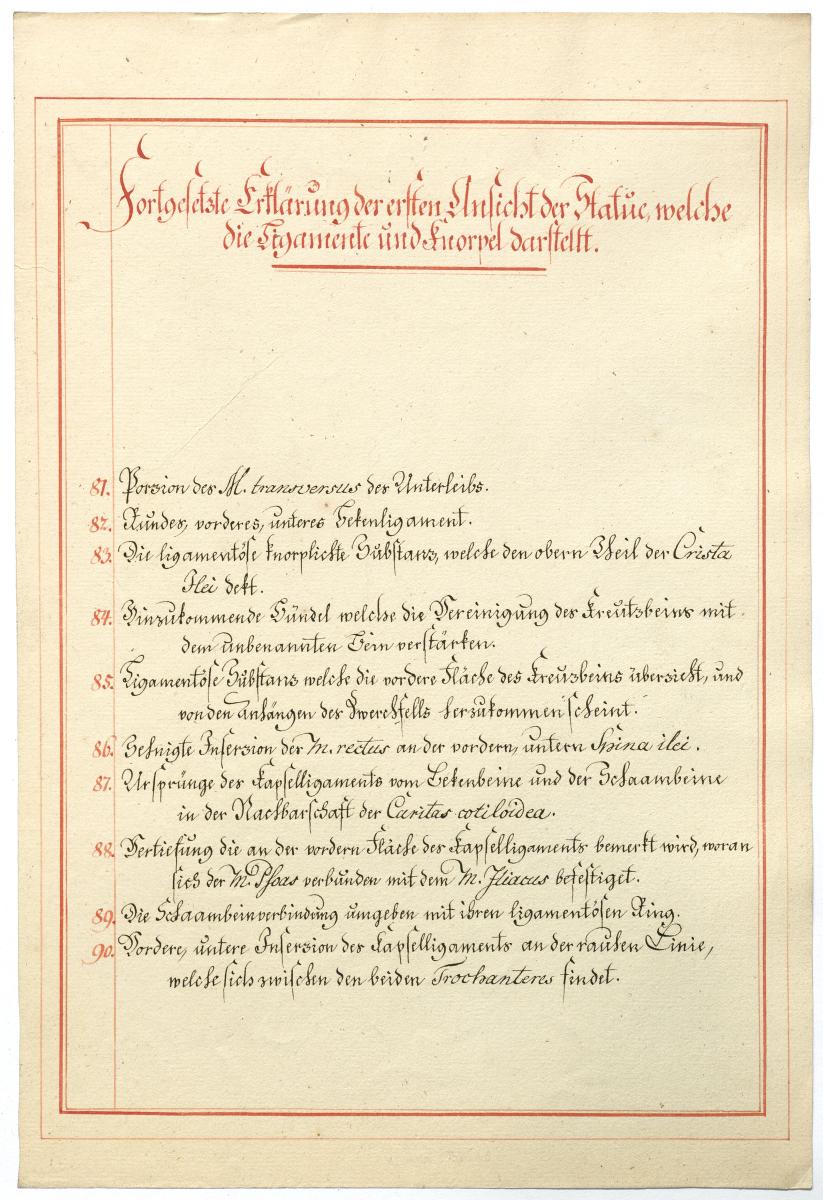 Fortgesetzte Erklärung der ersten Ansicht der Statue, welche
die Ligamente und Knorpel darstellt.
81. Porzion des M. transversus des Unterleibs.
82. Rundes, vorderes, unteres Bekenligament.
83. Die ligamentöse knorplichte Substanz, welche den obern Theil der Crista
Ilei dekt.
84. Hinzukommende Bündel welche die Vereinigung des Kreutzbeins mit
dem unbenannten Bein verstärken.
85. Ligamentöse Substanz welche die vordere Fläche des Kreuzbeins überzieht, und
von den Anhängen des Zwerchfells herzukommen scheint.
86. Sehnigte Inserzion der M. rectus an der vordern, untern Spina ilei.
87. Ursprünge des Kapselligaments vom Bekenbeine und der Schaambeine
in der Nachbarschaft der Cavitas cotiloidea.
88. Vertiefung die an der vordern Fläche des Kapselligaments bemerkt wird, woran
sich der M. Psoas verbunden mit dem M. Iliacus befestiget.
89. Die Schaambeinverbindung umgeben mit ihren ligamentösen Ring.
90. Vordere, untere Inserzion des Kapselligaments an der rauhen Linie,
welche sich zwischen den beiden Trochanteres findet.